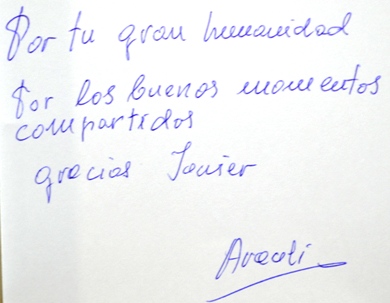 Por tu gran humanidad
Por los buenos momentos
compartidos
gracias Javier
Araceli